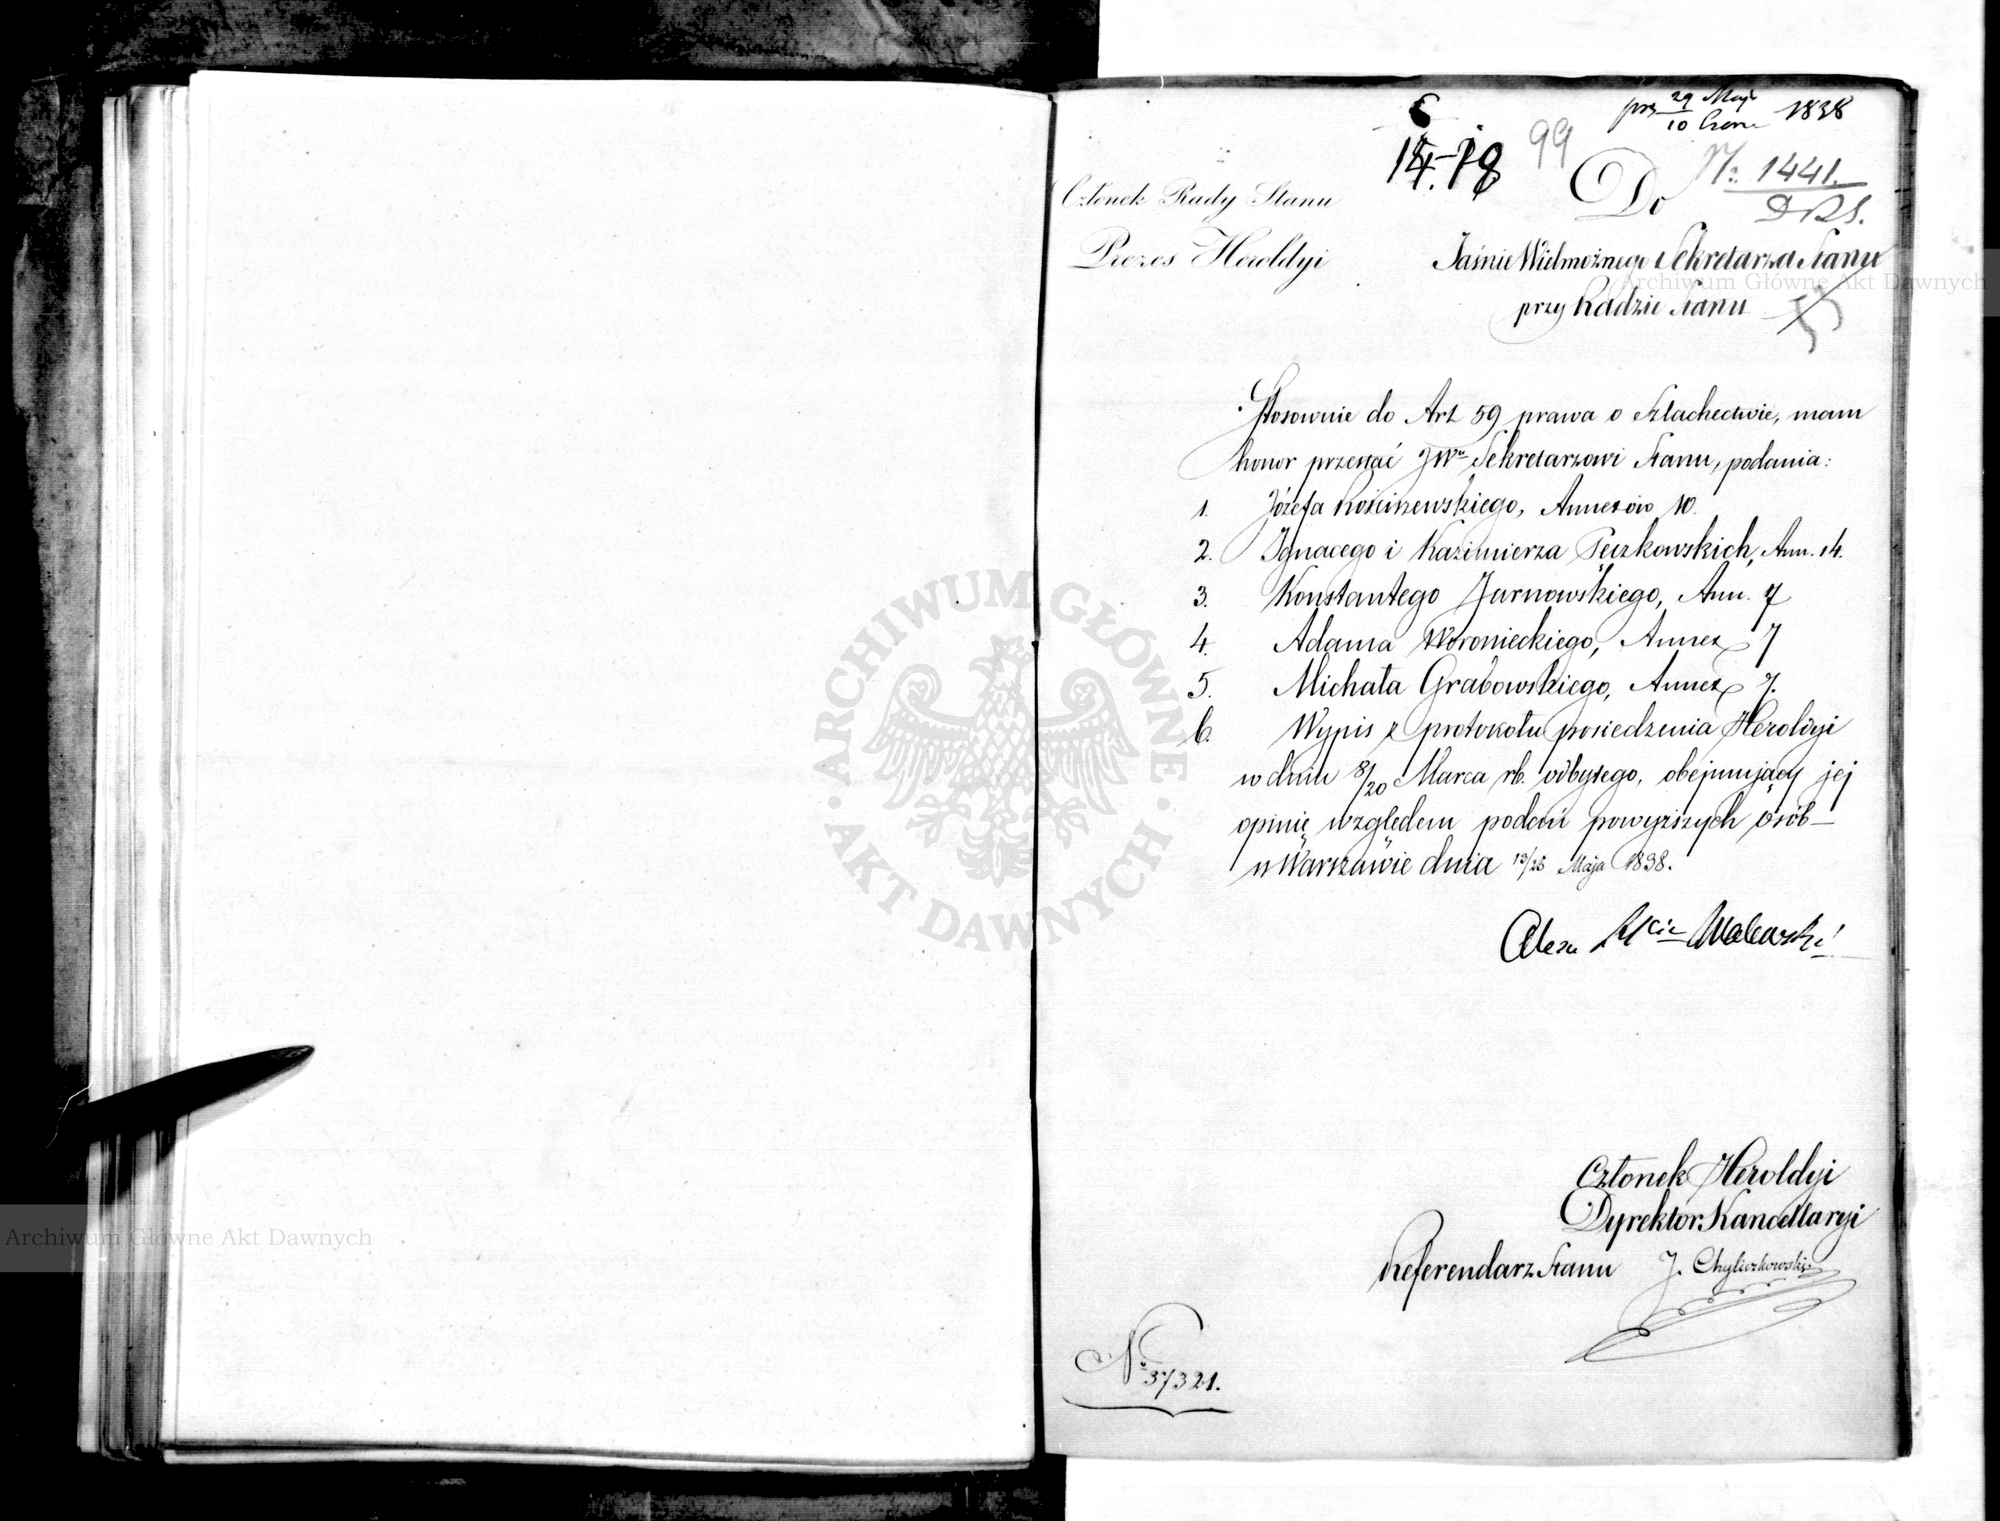 prez 29 Maja
10 Czer. 1838
6
14. 18
99
N: 1441.
D R S.
Członek Rady Stanu
Prezes Heroldyi
Do
Jaśnie Wielmożnego Sekretarza Stanu
przy Radzie Stanu
Stosownie do Art 59 prawa o Szlachectwie, mam
honor przesłać JWu Sekretarzowi Stanu, podania:
1. Józefa Kościszewskiego, Annexów 10.
2. Ignacego i Kazimierza Teczkowskich, Ann. 14.
3. Konstantego Jarnowskiego, Ann. 7
4. Adama Woronieckiego, Annex 7
5. Michała Grabowskiego, Annex 7.
6. Wypis z protokołu posiedzenia Heroldyi
w dniu 8/20 Marca rb. odbytego, obejmujący jej
opinię względem podań powyższych osób
w Warszawie dnia 13/25 Maja 1838.
Alexa Walewski
Członek Heroldyi
Dyrektor Kancellaryi
Referendarz Stanu J. Chyliczkowski
No 37321.
ARCHIWUM GŁÓWNE
AKT DAWNYCH
Archiwum Główne Akt Dawnych
Archiwum Główne Akt Dawnych